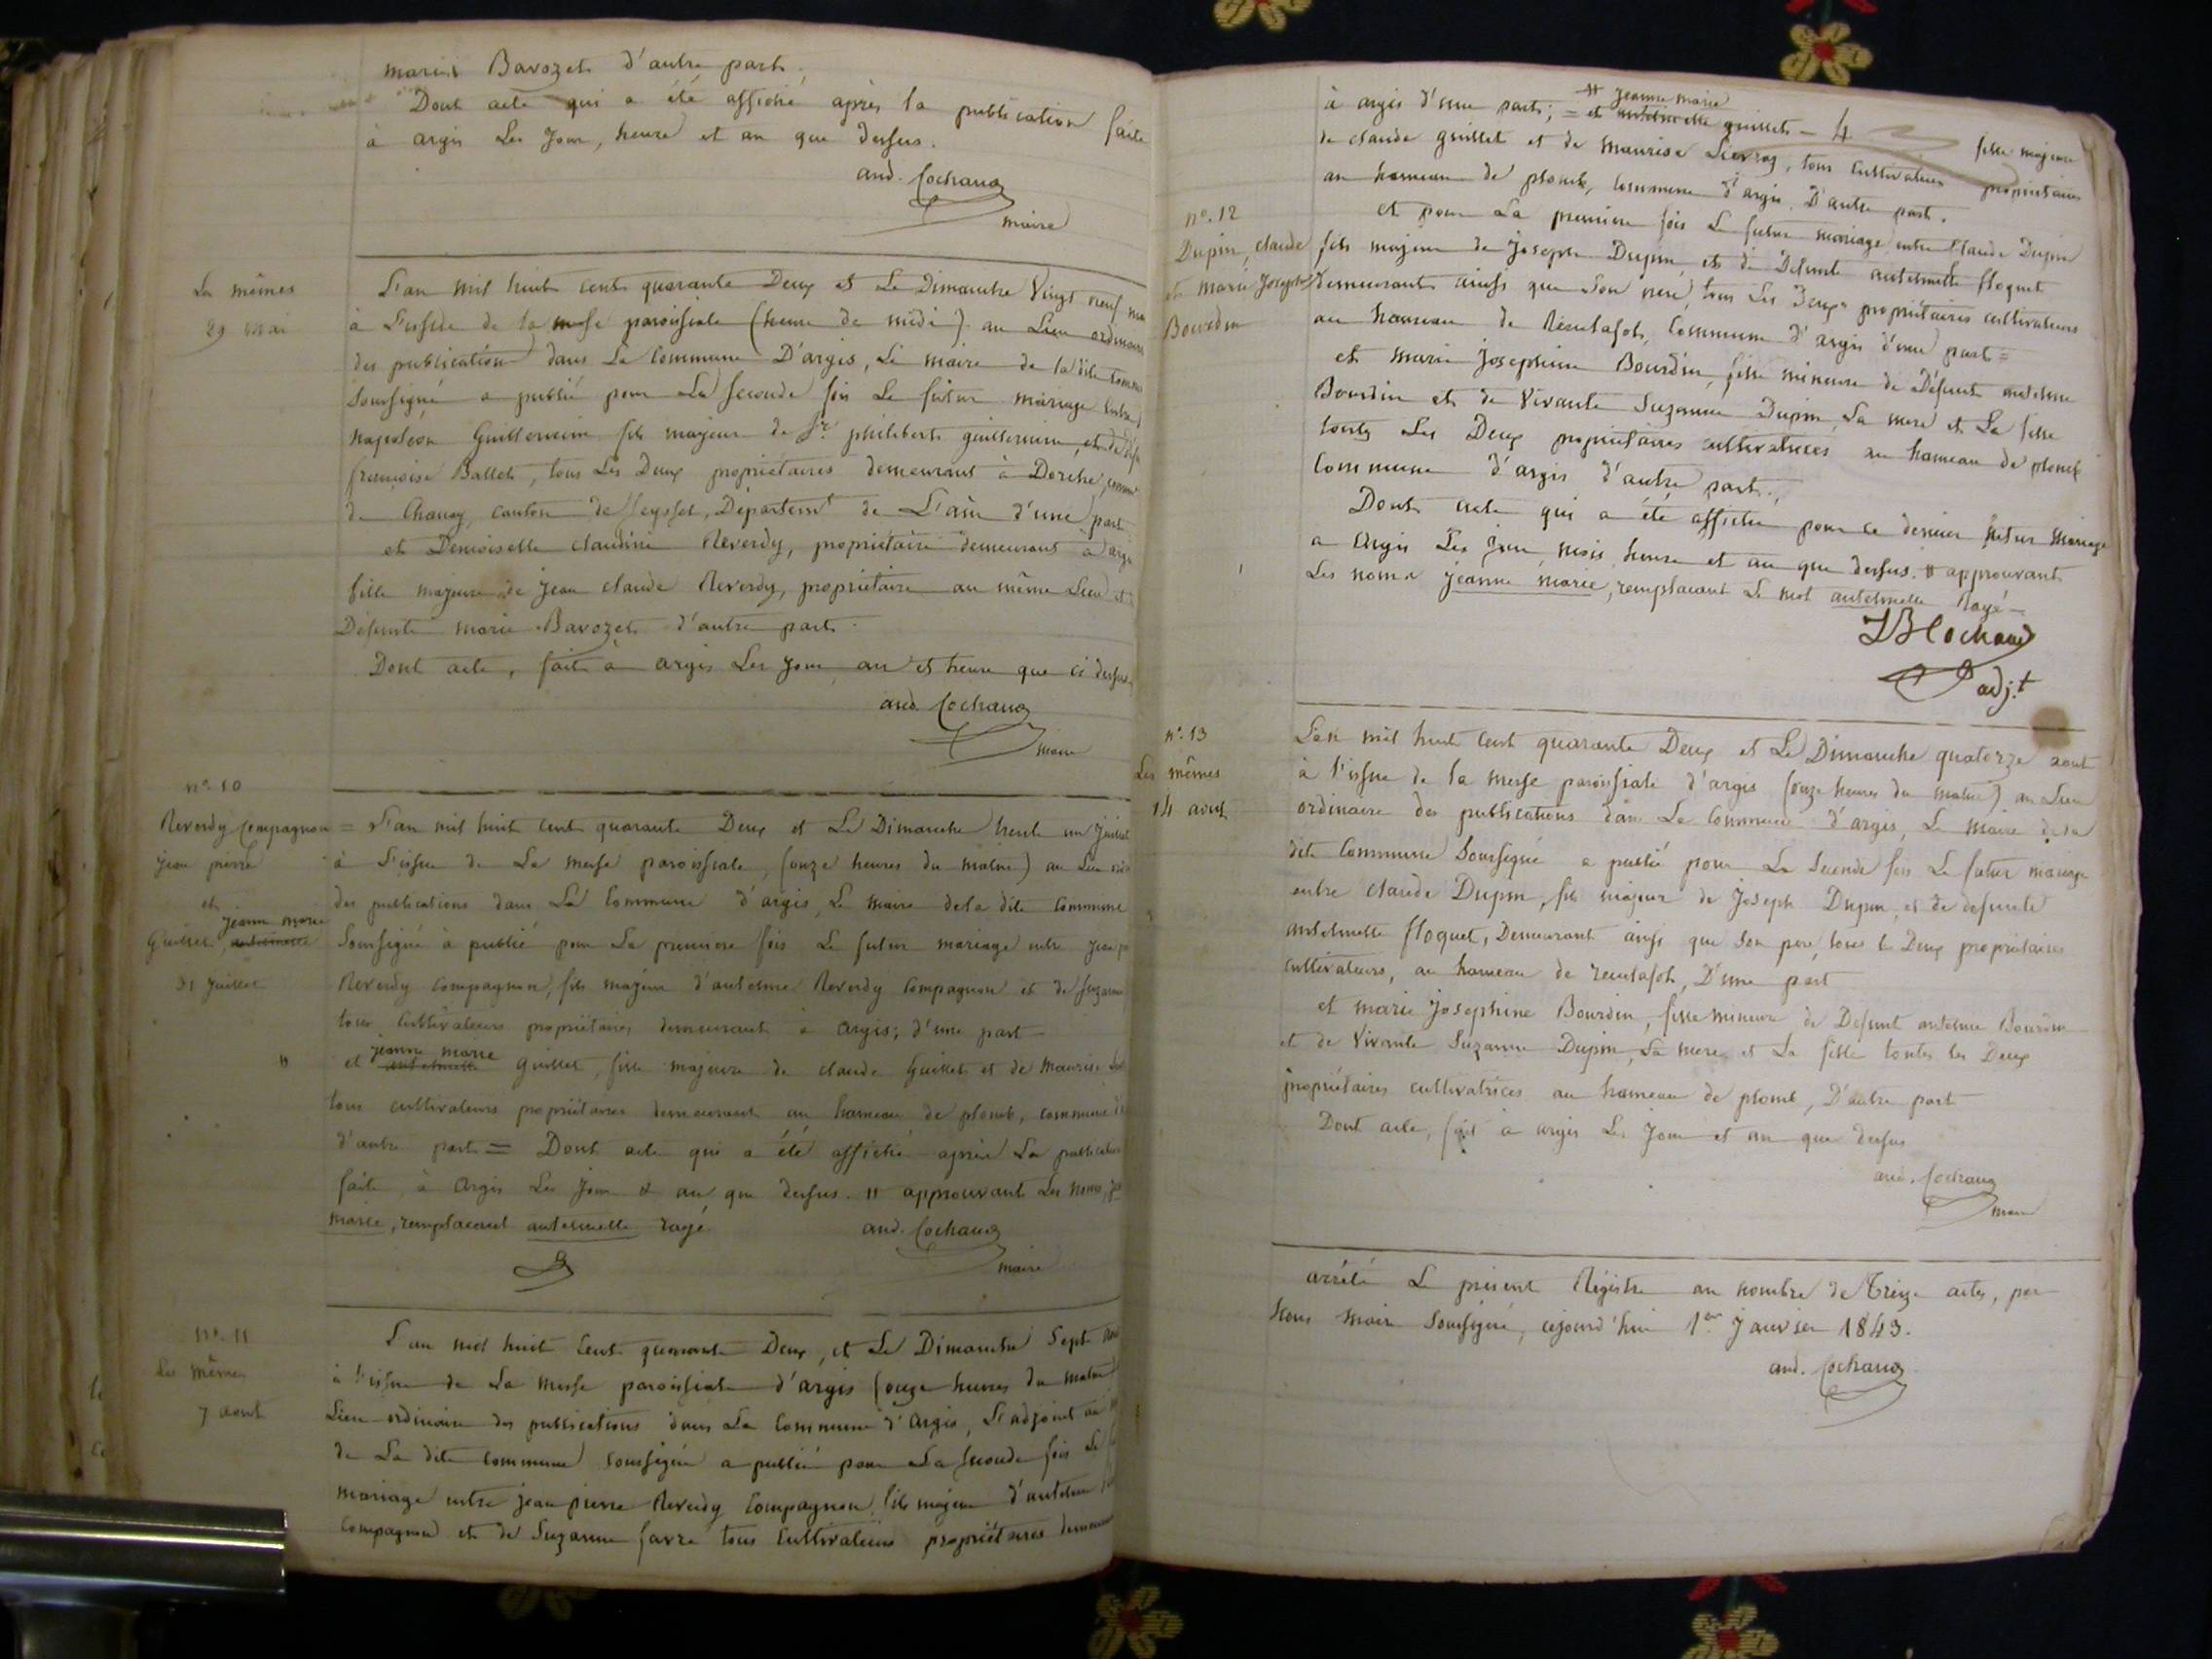 marie Bavozet d'autre part.
Dont acte qui a été affiché après la publication faite
à argis Les Jour, heure et an que dessus.
and. Cochaud
maire
Les mêmes
29 mai
L'an mil huit cent quarante Deux et Le Dimanche Vingt neuf mai
à L'issue de la messe paroissiale (heure de midi) au Lieu ordinaire
des publication dans La Commune D'argis, Le maire de la dite
Soussigné a publié pour La Seconde fois Le futur mariage
napoléon Guillermin fils majeur de Sr philibert guillermin, et de
françoise Ballet, tous Les Deux propriétaires demeurant à Dorche,
de Chanay, canton de Seyssel, Départemt de L'ain d'une part
et Demoiselle claudine Reverdy, propriétaire demeurant à argis
fille majeure de Jean claude Reverdy, propriétaire au même Lieu et
Défunte marie Bavozet d'autre part.
Dont acte, fait à argis Les Jour, an et heure que ci dessus
and. Cochaud
maire
no. 10
Reverdy Compagnon
jean pierre
et
jeanne marie
Guillet, antelmette
31 juillet
= L'an mil huit cent quarante Deux et Le Dimanche trente un Juillet
à L'issue de La messe paroissiale, (onze heures du matin) au Lieu
des publications dans La Commune d'argis, Le maire de la dite Commune
Soussigné à publié pour La première fois Le futur mariage entre
Reverdy Compagnon, fils majeur d'antelme Reverdy Compagnon et de Suzanne
tous Cultivateurs propriétaires demeurant à argis; d'une part
jeanne marie
et antelmette Guillet, fille majeure de claude Guillet et de maurise
tous cultivateurs propriétaires demeurant au hameau de plomb, commune
d'autre part = Dont acte qui a été affiché après La publication
faite, à argis Les Jour et an que dessus. # approuvant Les noms
marie, remplacant antelmette rayé
and. Cochaud
maire
no. 11
Les mêmes
7 aout
L'an mil huit Cent quarante Deux, et Le Dimanche Sept
à l'issue de La messe paroissiale d'argis (onze heures du matin)
Lieu ordinaire des publications dans La Commune d'argis, L'adjoint au
de La dite Commune soussigné a publié pour La seconde fois Le
mariage entre jean pierre Reverdy Compagnon, fils majeur d'antelme
Compagnon et de Suzanne favre tous Cultivateurs propriétaires
# jeanne marie
à argis d'une part; = et antelmette guillet – 4 fille majeure
de claude guillet et de maurise, tous Cultivateurs propriétaires
au hameau de plomb, commune d'argis. D'autre part.
no. 12
Dupin, claude
et marie Josephte
Bourdin
et pour La première fois Le futur mariage entre Claude Dupin
fils majeur de Joseph Dupin, et de Défunte antelmette floquet
Demeurant ainsi que Son père, tous Les Deux propriétaires cultivateurs
au hameau de, Commune d'argis d'une part =
et marie Josephine Bourdin, fille mineure de Défunt antelme
Bourdin et de Vivante Suzanne Dupin, La mere et La fille
toutes Les Deux propriétaires cultivatrices au hameau de plomb
Commune d'argis d'autre part.
Dont acte qui a été affiché pour ce dernier futur Mariage
a argis Les Jour, mois, heure et an que dessus. # approuvant
Les noms jeanne marie, remplacant Le mot antelmette Rayé –
JB Cochaud
adj.t
no. 13
Les mêmes
14 aout
L'an mil huit Cent quarante Deux et Le Dimanche quatorze aout
à l'issue de la messe paroissiale d'argis (onze heures du matin) au Lieu
ordinaire des publications dans La Commune d'argis, Le maire de la
dite Commune Soussigné a publié pour La Seconde fois Le futur mariage
entre claude Dupin, fils majeur de Joseph Dupin, et de defunte
antelmette floquet, Demeurant ainsi que Son pere, tous les Deux propriétaires
cultivateurs, au hameau de, D'une part
et marie Josephine Bourdin, fille mineure de Defunt antelme Bourdin
et de Vivante Suzanne Dupin, La mere et La fille toutes les Deux
propriétaires cultivatrices au hameau de plomb, D'autre part
Dont acte, fait à argis Les Jour et an que dessus
and. Cochaud
maire
arrêté Le présent Régistre au nombre de Treize actes, par
Nous maire Soussigné, cejourd'hui 1er Janvier 1843.
and. Cochaud